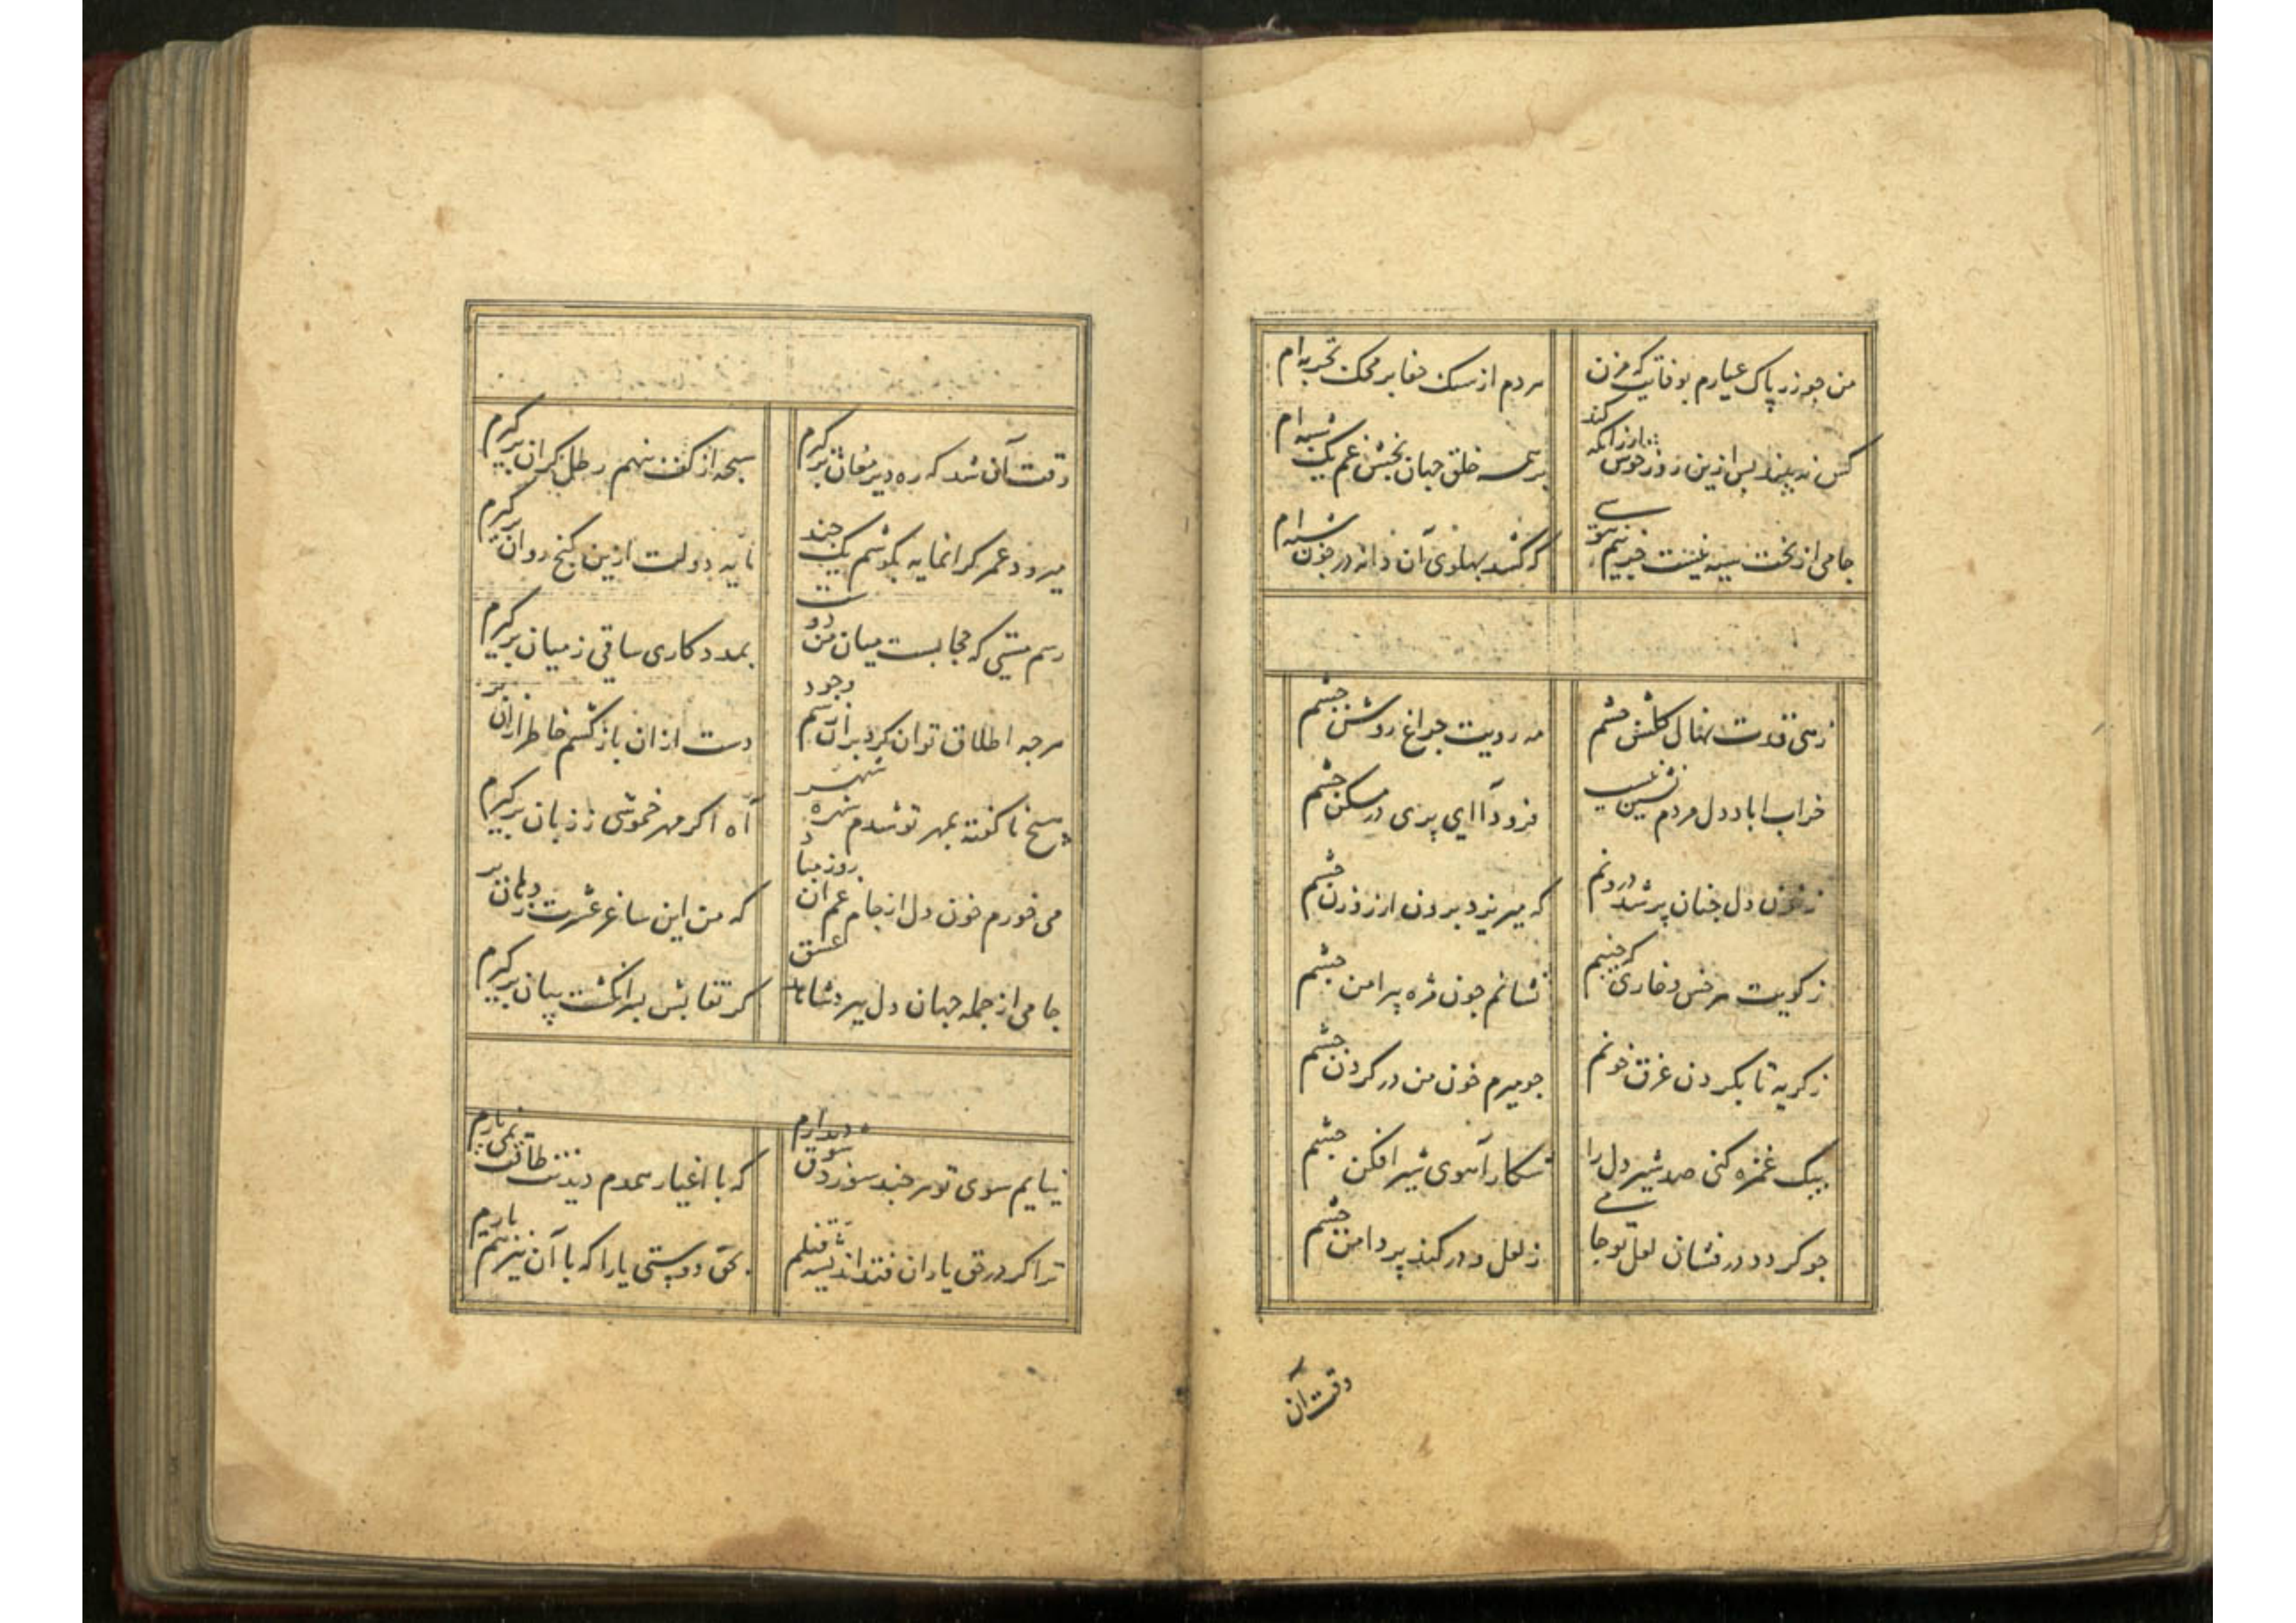 من چو زر پاک عیارم بوفایت که مزن
مردم از سنک جفا بر محک تجربه ام
کس نه بیند پس ازین روز خوش ارزانکه کند
بر همه خلق جهان بخش غم یک شبه ام
جامی از تخت سیه نیست خبرم
که کند پهلوی آن دانه در خون
زهی قدت نهال کلشن چشم
مه رویت چراغ روشن چشم
خراب اباد دل مردم نشین نیست
فرود آ ای پری در مسکن چشم
ز خون دل چنان پر شد درونم
که میریزد برون از روزن چشم
ز کویت هر خس و خاری که چینم
نشانم چون مژه پیرامن چشم
ز کریه تا بکردن غرق خونم
چو میرم خون من در کردن چشم
بیک غمزه کنی صد شیر دل را
شکار آهوی شیر افکن چشم
چو کردد در فشان لعل تو جامی
ز لعل و در کند پر دامن چشم
وقت آن
وقت آن شد که ره دیر مغان بر کیرم
سبحه از کف بنهم رطل کران بر کیرم
میرود عمر کرانمایه بکوشم یک چند
مایه دولت ازین کنج روان بر کیرم
رسم هستی که حجابست میان من و دوست
بمدد کاری ساقی ز میان بر کیرم
هرچه اطلاق توان کرد بران رسم وجود
دست ازان باز کشم خاطر ازان بر
سخن ناکفته بمهر تو شدم شهره شهر
آه اکر مهر خموشی ز زبان بر کیرم
می خورم خون دل از جام غم آن روز مباد
که من این ساغر عشرت ز دهان بر
جامی از جمله جهان دل ببرد شاهد عشق
کر نقابش بر انکشت بیان بر کیرم
نیایم سوی تو هر چند سوزد شوق دیدارم
که با اغیار همدم دیدنت طاقت نمی یارم
ترا کر در حق یاران فتد اندیشه قتلم
بحق دوستی یارا که با آن نیز هم یارم